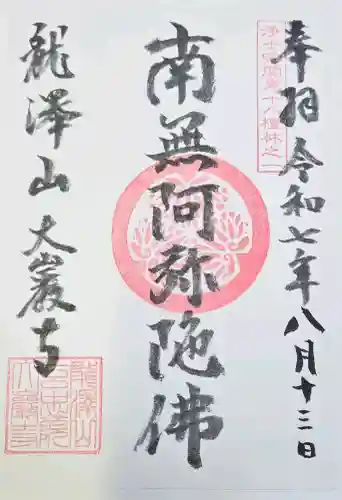 奉拝 令和七年八月十三日
浄土宗関東十八檀林之一
南無阿弥陀佛
龍澤山 大巌寺
龍澤山
玄忠院
大巖寺